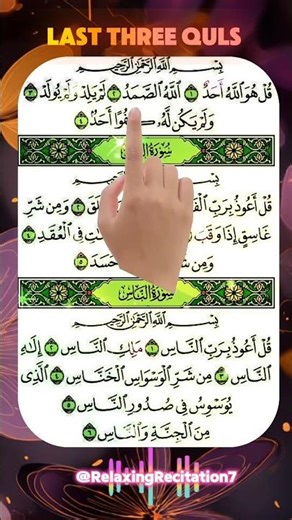 LAST THREE QULS
بِسْمِ اللَّهِ الرَّحْمَٰنِ الرَّحِيمِ
قُلْ هُوَ اللَّهُ أَحَدٌ ١ اللَّهُ الصَّمَدُ ٢ لَمْ يَلِدْ وَلَمْ يُولَدْ ٣
وَلَمْ يَكُنْ لَهُ كُفُوًا أَحَدٌ ٤
سُورَةُ
بِسْمِ اللَّهِ الرَّحِيمِ
قُلْ أَعُوذُ بِرَبِّ وَمِنْ شَرِّ
غَاسِقٍ إِذَا وَقَبَ فِي الْعُقَدِ ٤
وَمِنْ حَسَدَ ٥
سُورَةُ النَّاسِ
بِسْمِ اللَّهِ الرَّحْمَٰنِ الرَّحِيمِ
قُلْ أَعُوذُ بِرَبِّ النَّاسِ ١ مَلِكِ النَّاسِ ٢ إِلَٰهِ
النَّاسِ ٣ مِنْ شَرِّ الْوَسْوَاسِ الْخَنَّاسِ ٤ الَّذِي
يُوَسْوِسُ فِي صُدُورِ النَّاسِ ٥
مِنَ الْجِنَّةِ وَالنَّاسِ ٦
@RelaxingRecitation7